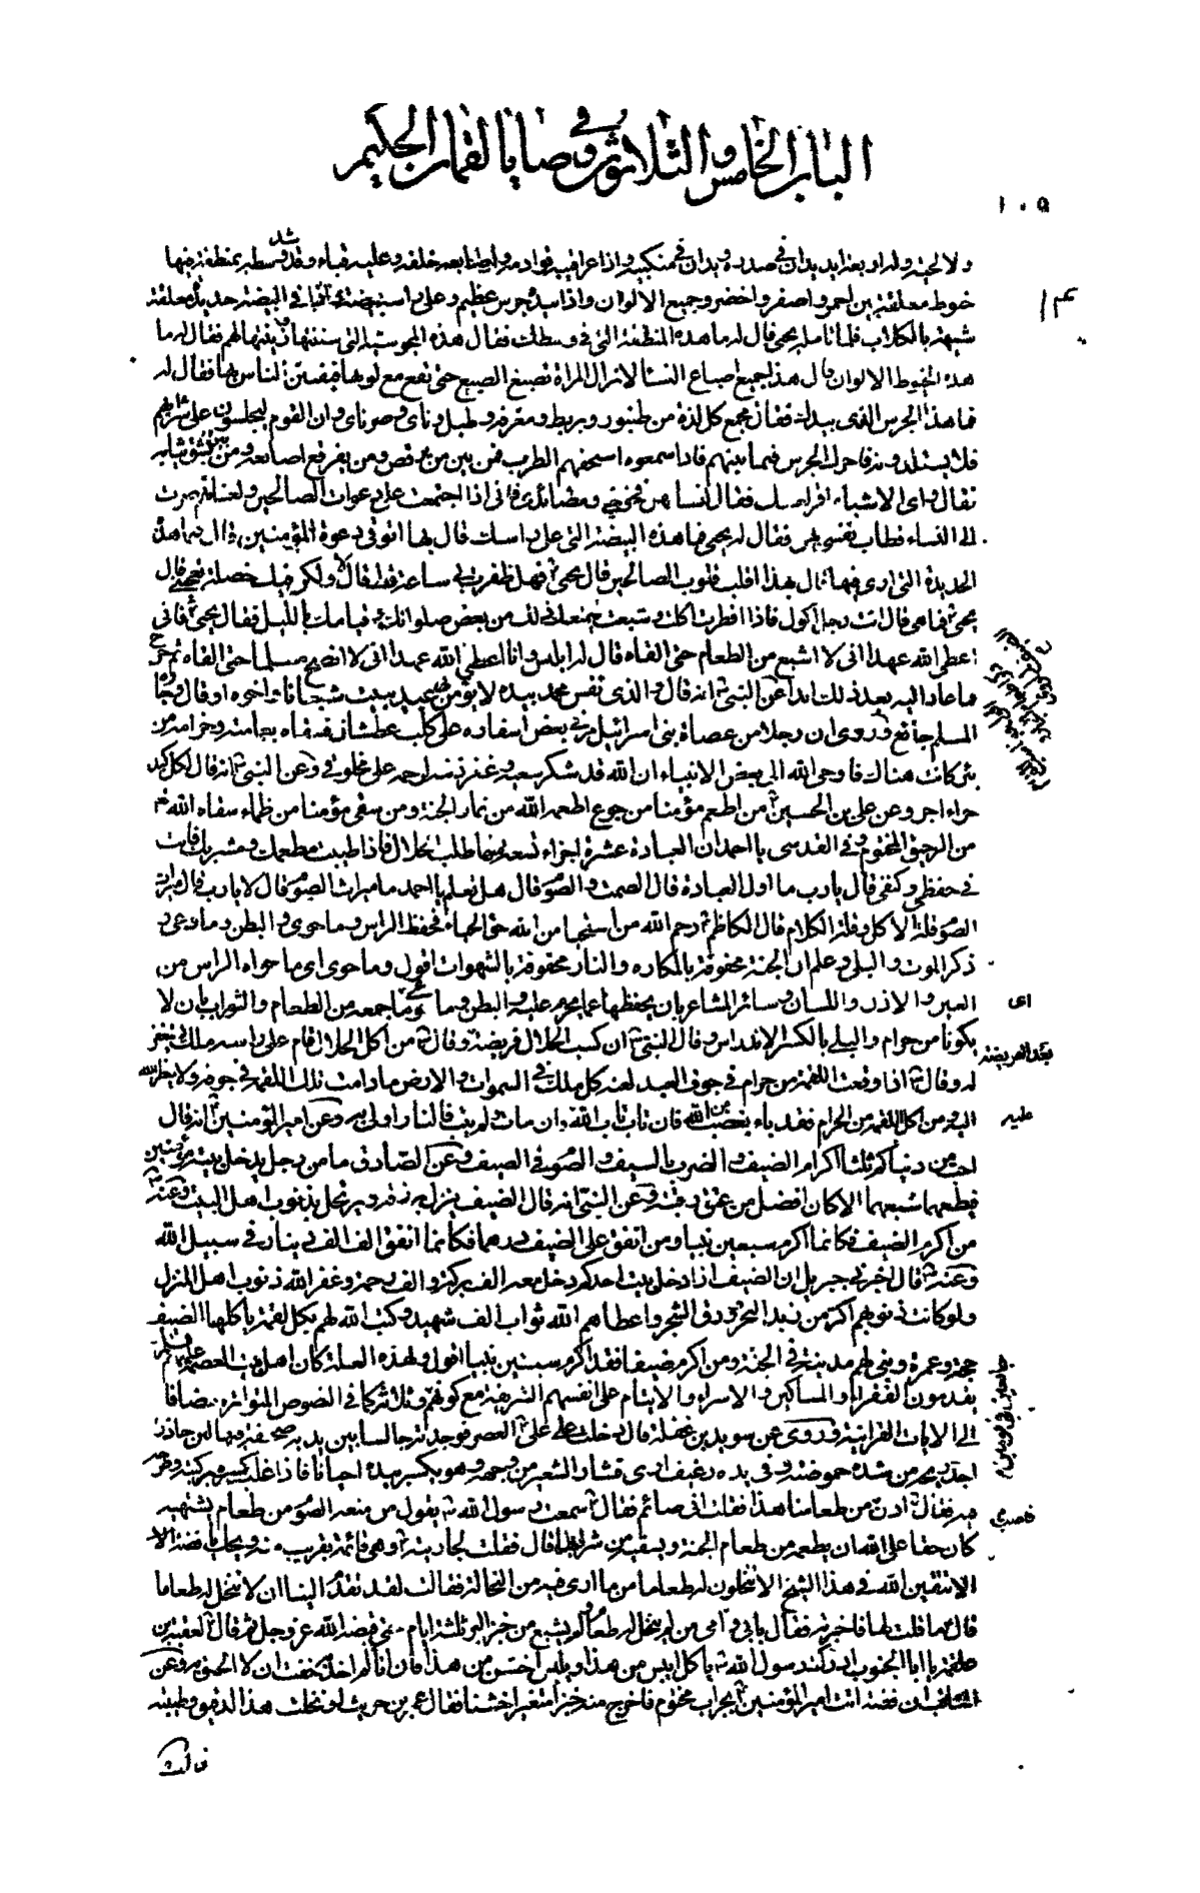 الباب الخامس والثلاثون في وصايا لقمان الحكيم
١٠٥
ولا لحية وله اربعة ايد يدان في صدره ويدان في منكبيه واذا عراقيبه قوادمه واصابعه خلفه وعليه قباء وقد شد وسطه بمنطقة فيها
خيوط معلقة بين احمر واصفر واخضر وجميع الالوان واذا بيده جرس عظيم وعلى راسه بيضة واذا في البيضة حديدة معلقة
شبيهة بالكلاب فلما تامله يحيى قال له ما هذه المنطقة التي في وسطك فقال هذه المجوسية التي سننتها وزينتها لهم فقال له ما
هذه الخيوط الالوان قال هذا جميع اصباع النساء لا تزال المراة تصبغ الصبيغ حتى تقع مع لونها فيفتتن الناس بها فقال له
فما هذا الجرس الذي بيدك فقال مجمع كل لذة من طنبور وبربط ومعزفة وطبل وناي وصرناي وان القوم ليجلسون على شرابهم
فلا يستلذونه فاحرك الجرس فيما بينهم فاذا سمعوه استخفهم الطرب فمن بين من يرقص ومن يفرقع اصابعه ومن بين من يشق ثيابه
فقال واي الاشياء اقر لعينك فقال النساء هن فخوخي ومصائدي فاني اذا اجتمعت على دعوات الصالحين ولعناتهم صرت
الى النساء فطاب نفسي بهن فقال له يحيى فما هذه البيضة التي على راسك قال بها اتوقى دعوة المؤمنين قال فما هذه
الحديدة التي ارى فيها قال بهذا اقلب قلوب الصالحين قال يحيى فهل ظفرت بي ساعة قط قال لا ولكن فيك خصلة تعجبني قال
يحيى فما هي قال انت رجل اكول فاذا افطرت اكلت وشبعت فيمنعك ذلك من بعض صلواتك وقيامك بالليل فقال يحيى فاني
اعطي الله عهدا اني لا اشبع من الطعام حتى القاه قال له ابليس وانا اعطي الله عهدا اني لا انصح مسلما حتى القاه ثم خرج
فما عاد اليه بعد ذلك ابدا عن النبي انه قال والذي نفس محمد بيده لا يؤمن بي عبد يبيت شبعانا واخوه او قال وجاره
المسلم جائع وروي ان رجلا من عصاة بني اسرائيل مر في بعض اسفاره على كلب عطشان فسقاه بعمامته وخرامه من
بئر كانت هناك فاوحى الله الى بعض الانبياء ان الله قد شكر سعيه وغفر ذنبه لرحمه على مخلوقي وعن النبي انه قال لكل كبد
حراء اجر وعن علي بن الحسين من اطعم مؤمنا من جوع اطعمه الله من ثمار الجنة ومن سقى مؤمنا من ظماء سقاه الله
من الرحيق المختوم وفي القدسي يا احمد ان العبادة عشرة اجزاء تسعة منها طلب الحلال فاذا طيبت مطعمك ومشربك فانت
في حفظي وكنفي قال يا رب ما اول العبادة قال الصمت والصوم قال هل تعلم يا احمد ما ميراث الصوم قال لا يا رب قال ميراث
الصوم قلة الاكل وقلة الكلام قال الكاظم رحم الله من استحيا من الله حق الحياء فحفظ الراس وما حوى والبطن وما وعى و
ذكر الموت والبلى وعلم ان الجنة محفوفة بالمكاره والنار محفوفة بالشهوات اقول وما حوى اي ما حواه الراس من
العين والاذن واللسان وسائر المشاعر بان يحفظها عما يحرم عليه والبطن وما وعى اي ما جمعه من الطعام والشراب بان لا
يكونا من حرام والبلى بالكسر الاندراس وقال النبي ان كسب الحلال فريضة وقال من اكل الحلال قام على راسه ملك يستغفر
بعد الفريضة
له وقال اذا وقعت اللقمة من حرام في جوف العبد لعنه كل ملك في السموات والارض ما دامت تلك اللقمة في جوفه ولا ينظر الله
اليه ومن اكل اللقمة من الحرام فقد باء بغضب من الله فان تاب تاب الله عليه وان مات لم يتب فالنار اولى به وعن امير المؤمنين انه قال
احب من دنياكم ثلثا اكرام الضيف والضرب بالسيف والصوم في الصيف وعن الصادق ما من رجل يدخل بيته مؤمنين
فيطعمهما شبعهما الا كان افضل من عتق رقبة وعن النبي انه قال الضيف ينزل برزقه ويرتحل بذنوب اهل البيت وعنه
من اكرم الضيف فكانما اكرم سبعين نبيا ومن انفق على الضيف درهما فكانما انفق الف الف دينار في سبيل الله
وعنه قال اخبرني جبريل ان الضيف اذا دخل بيت احدكم دخل معه الف بركة والف رحمة وغفر الله ذنوب اهل المنزل
ولو كانت ذنوبهم اكثر من زبد البحر وورق الشجر واعطاهم الله ثواب الف شهيد وكتب الله لهم بكل لقمة ياكلها الضيف
حجة وعمرة وبنى لهم مدينة في الجنة ومن اكرم ضيفا فقد اكرم سبعين نبيا اقول ولهذه العلة كان اهل بيت العصمة
يقدمون الفقراء والمساكين والاسراء والايتام على انفسهم الشريفة مع كونهم كما في النصوص المتواترة مضافا
الى الايات القرانية وروي عن سويد بن غفلة قال دخلت على علي العصر فوجدته جالسا بين يديه صحفة فيها لبن حاذر
اجد ريحه من شدة حموضته وفي يده رغيف ارى قشار الشعير من وجهه وهو يكسر بيده احيانا فاذا غلبه كسره بركبته وطرحه
فيه فقال ادن فاصب من طعامنا هذا فقلت اني صائم فقال سمعت رسول الله يقول من منعه الصوم من طعام يشتهيه
كان حقا على الله ان يطعمه من طعام الجنة ويسقيه من شرابها قال فقلت لجاريته وهي قائمة بقريب منه ويحك يا فضة الا
الا تتقين الله في هذا الشيخ الا تنخلون له طعاما مما ارى فيه من النخالة فقالت لقد تقدم الينا ان لا ننخل له طعاما
قال ما قلت لها فاخبرته فقال بابي وامي من لم ينخل له طعام ولم يشبع من خبز البر ثلثة ايام حتى قبضه الله عز وجل ثم قال لعقبة بن
علقمة يا ابا الجنوب ادركت رسول الله ياكل ايبس من هذا ويلبس اخشن من هذا فان انا لم اخذ به خفت ان لا الحق به وعن
ان فضة اتت امير المؤمنين بجراب مختوم فاخرج منه خبزا متغيرا خشنا فقال عمرو بن حريث لو نخلت هذا الدقيق وطيبته
قالت